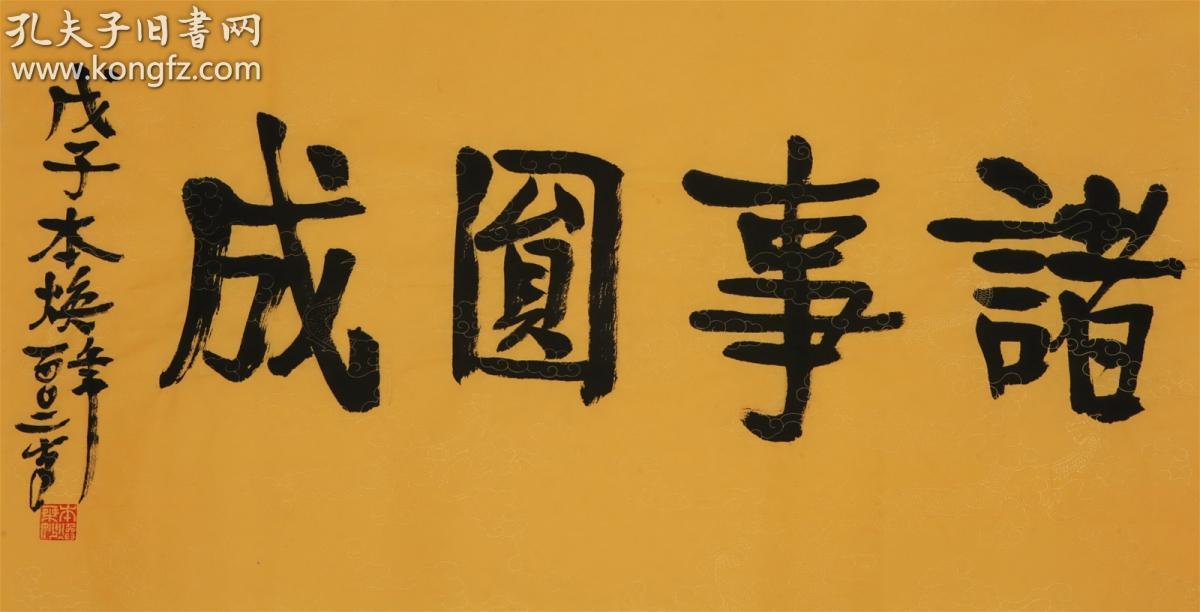 孔夫子旧书网
www.kongfz.com
諸事圓成
戊子本焕年百〇二书